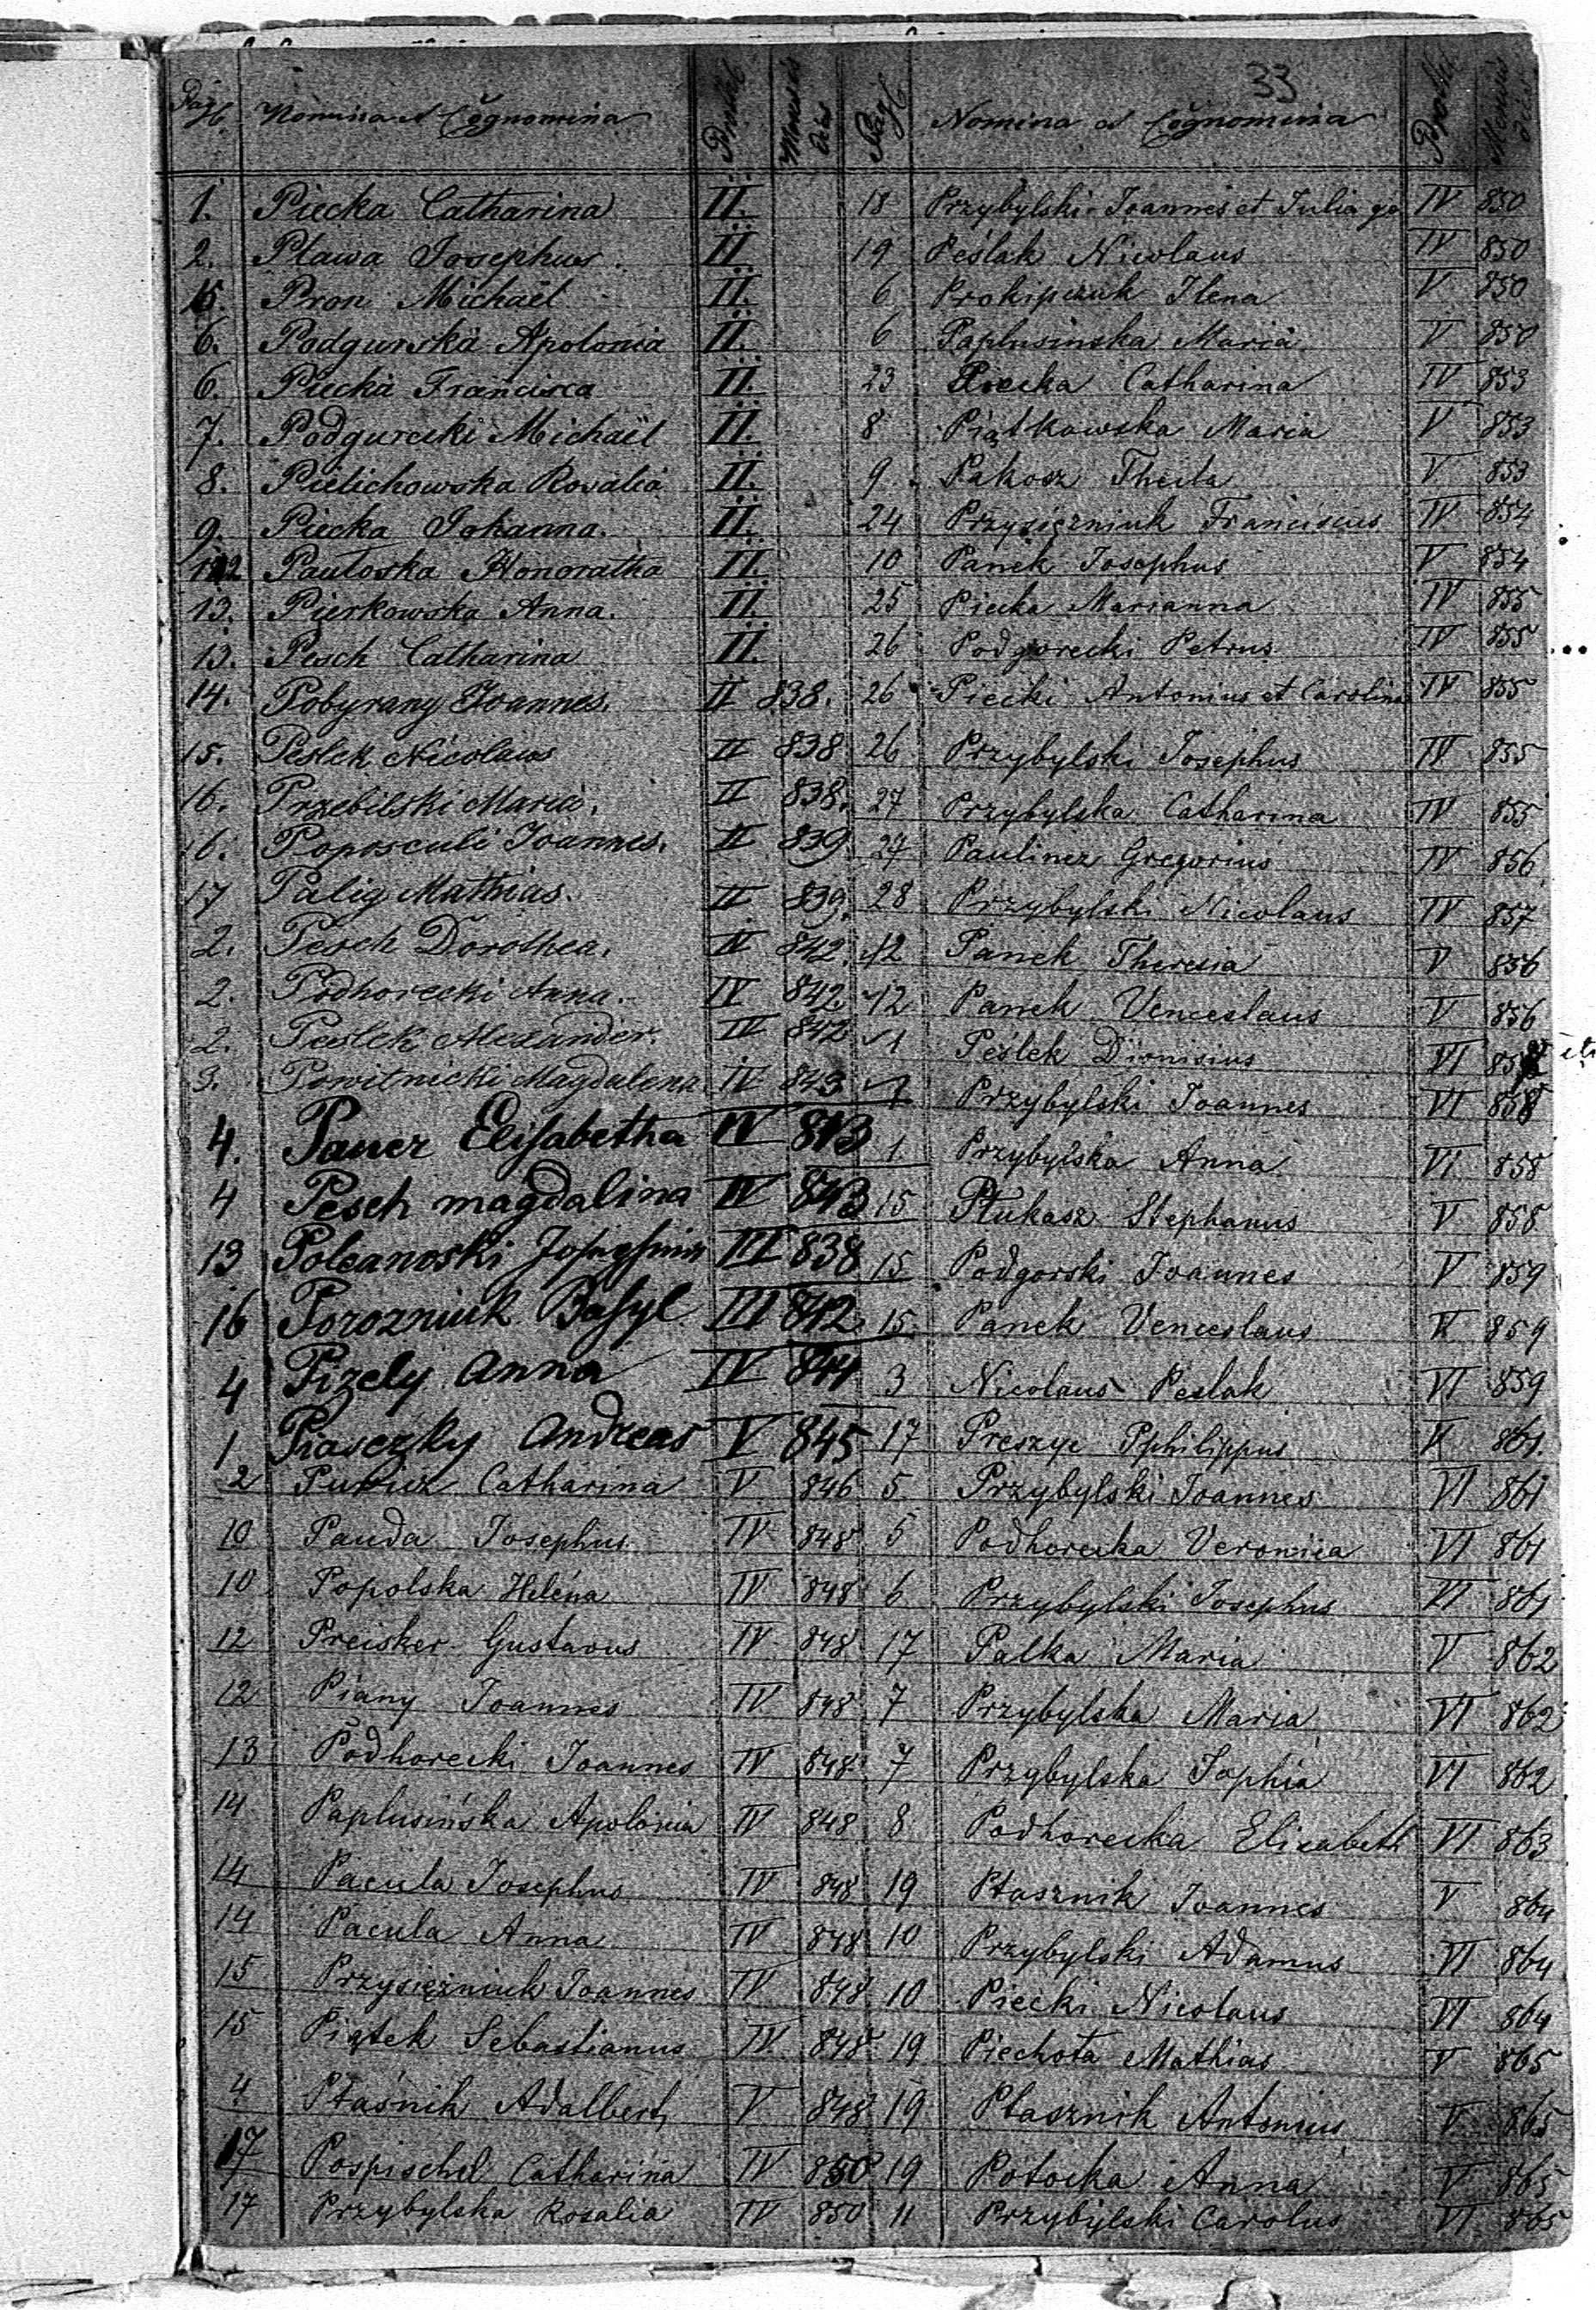 33
Pag. Nomina et Cognomina Mensis dies
1. Piecka Catharina II.
2. Pława Josephus. II.
5. Pron Michaël II.
6. Podgurska Apolonia II.
6. Piecka Francisca II.
7. Podgurecki Michaël II.
8. Pielichowska Rosalia II.
9. Piecka Johanna. II.
12 Pautoska Honoratha II.
13. Pierkowska Anna. II.
13. Pesch Catharina II.
14. Pobyrany Joannes. II 838.
15. Peslek Nicolaus II 838
16. Przebilski Maria. II 838.
16. Poposculi Joannes. II 839
17 Palig Mathias. II 839.
2. Pesch Dorothea. IV 842.
2. Podhorecki Anna. IV 842
2. Peslek Alexander. IV 842
3. Powitnicki Magdalena IV 843
4. Pauer Elisabetha IV 843
4 Pesch magdalina IV 843
13 Poleanoski III 838
16 Porozniuk Basyl III 842
4 Pizely Anna IV 844
1 Piaseczky Andreas V 845
2 Catharina V 846
10 Pauda Josephus IV 848
10 Popolska Helena IV 848
12 Preisker Gustavus IV 848
12 Piany Joannes IV 848
13 Podhorecki Joannes IV 848
14 Paplusińska Apolonia IV 848
14 Pacula Josephus IV 848
14 Pacula Anna IV 848
15 Przysiężniuk Joannes IV 848
15 Piątek Sebastianus IV 848
4 Ptaśnik Adalbert V 848
17 Pospischel Catharina IV 850
17 Przybylska Rosalia IV 850
Pag. Nomina et Cognomina Mensis dies
18 Przybylski Joannes et Julia IV 850
19 Peślak Nicolaus IV 850
6 Prokipczuk Ilena V 850
6 Paplusinska Maria V 850
23 Piecka Catharina IV 853
8 Piątkowska Maria V 853
9 Pakosz Thecla V 853
24 Przysiężniuk Franciscus IV 854
10 Panek Josephus V 854
25 Piecka Marianna IV 855
26 Podgorecki Petrus IV 855
26 Piecki Antonius et Carolina IV 855
26 Przybylski Josephus IV 855
27 Przybylska Catharina IV 855
27 Paulinez Gregorius IV 856
28 Przybylski Nicolaus IV 857
12 Panek Theresia V 856
12 Panek Venceslaus V 856
1 Peślek Dionisius VI
1 Przybylski Joannes VI 858
1. Przybylska Anna VI 858
15 Ptukasz Stephanus V 858
15 Podgorski Joannes V 859
15 Panek Venceslaus V 859
3 Nicolaus Peslak VI 859
17 Preszyc Pphilippus V 861.
5 Przybylski Joannes VI 861
5 Podhorecka Veronica VI 861
6 Przybylski Josephus VI 861
17 Palka Maria V 862
7 Przybylska Maria VI 862
7 Przybylska Sophia VI 862
8 Podhorecka Elisabeth VI 863
19 Ptasznik Joannes V 864
10 Przybylski Adamus VI 864
10 Piecki Nicolaus VI 864
19 Piechota Mathias V 865
19 Ptasznik Antonius V 865
19 Potocka Anna V 865
11 Przybylski Carolus VI 865